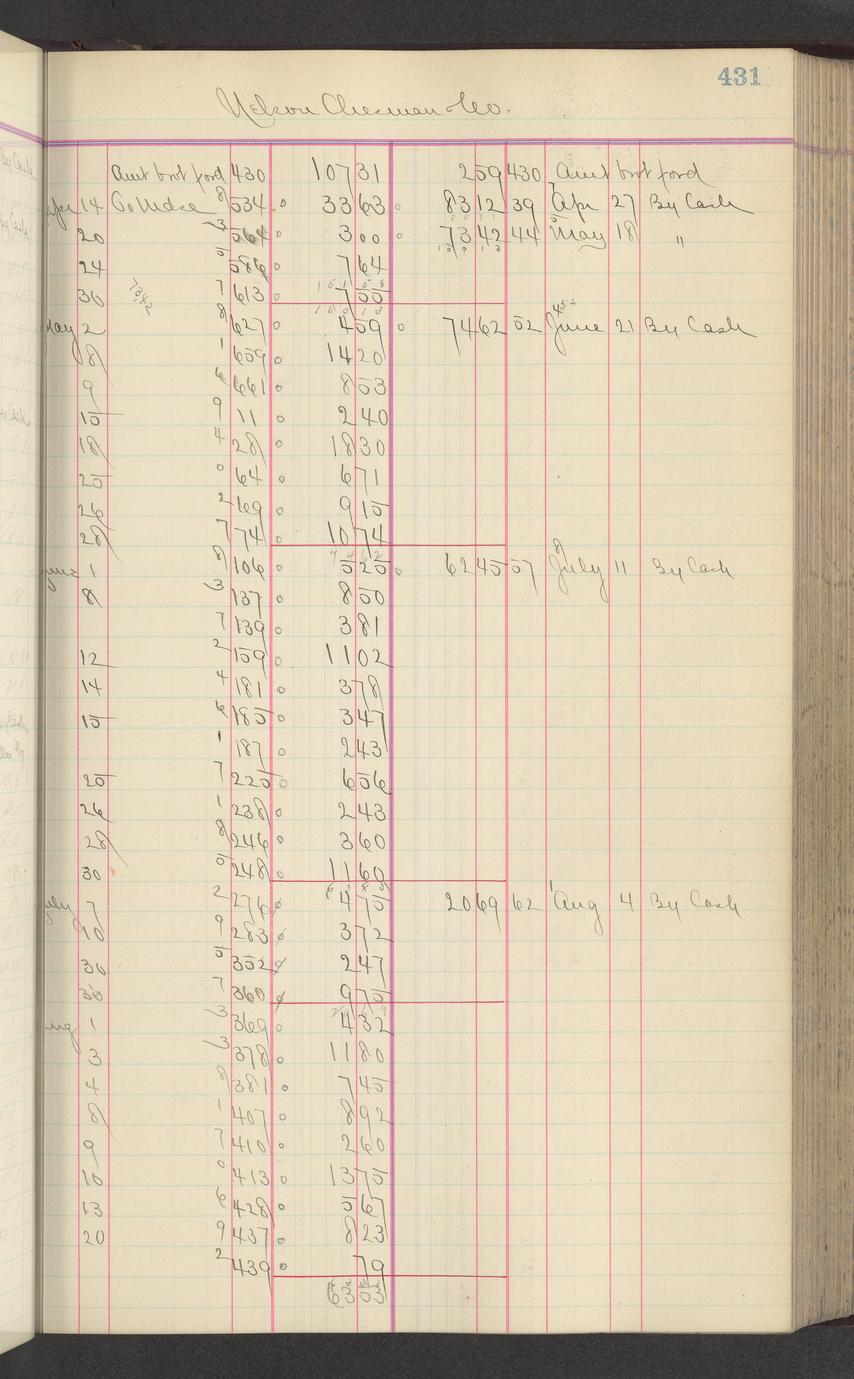 431
Nelson Chesman & Co.
Amt brot ford 430 107 31 2 59 430 Amt brot ford
Apr 14 To Mdse 8 534 33 63 83 12 39 Apr 27 By Cash
20 3 564 3 00 73 42 44 May 18 "
24 5 586 7 64
30 7342 7 613 7 55
May 2 8 627 4 59 74 62 52 June 21 By Cash
8 1 659 14 20
9 6 661 8 53
15 9 11 2 40
18 4 28 18 30
25 0 64 6 71
26 2 69 9 15
28 7 74 10 74
June 1 8 106 5 25 62 45 57 July 11 By Cash
8 3 137 8 50
7 139 3 81
12 2 159 11 02
14 4 181 3 78
15 6 185 3 47
1 187 2 43
25 7 225 6 56
26 1 238 2 43
28 8 246 3 60
30 5 248 11 60
July 7 2 276 4 75 20 69 62 Aug 4 By Cash
10 9 283 3 72
30 5 352 2 47
30 7 360 9 75
Aug 1 3 369 4 32
3 3 378 11 80
4 8 381 7 45
8 1 407 8 92
9 7 410 2 60
10 0 413 13 75
13 6 428 5 67
20 9 437 8 23
2 439 79